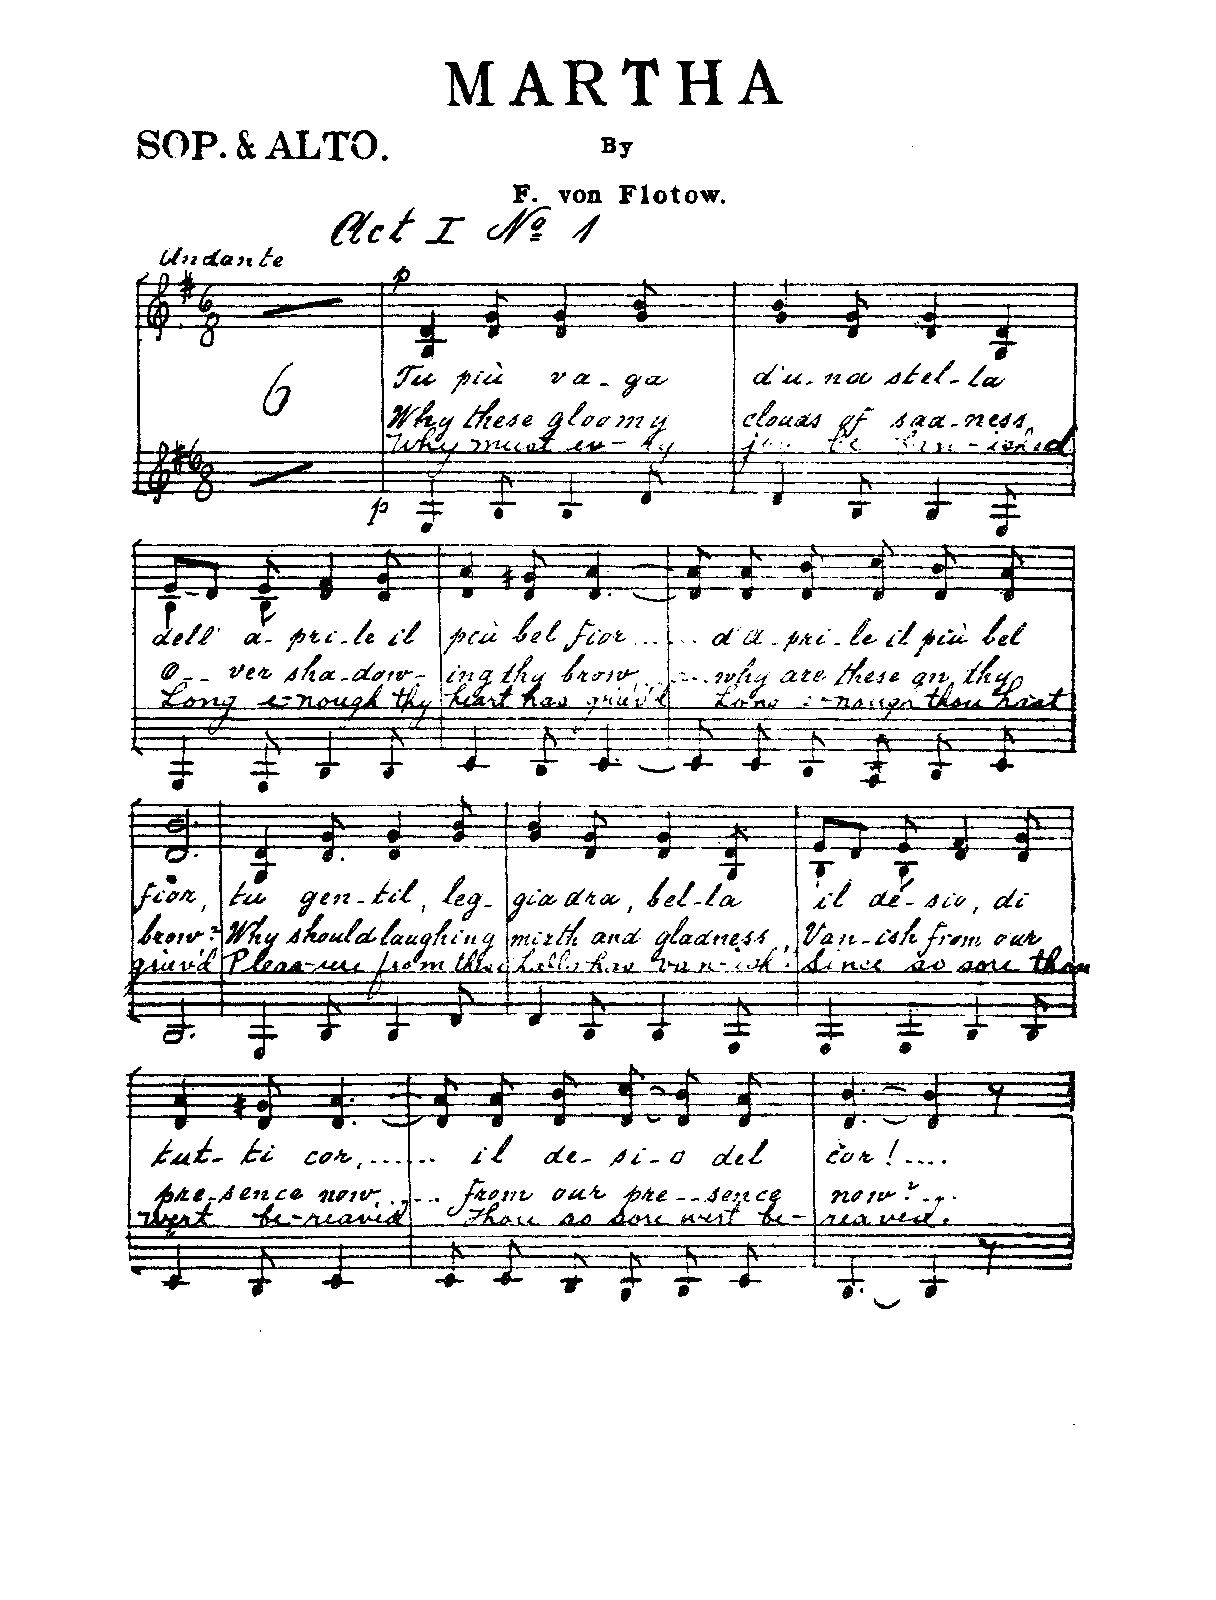 MARTHA
SOP. & ALTO.
By
F. von Flotow.
Act I No 1
Andante
p
6
8
6
Tu più va-ga d'u-na stel-la
Why these gloomy clouds of sadness
Why must ev-'ry joy be ban-ished
6
8
p
dell' a-pri-le il più bel fior...... d'a-pri-le il più bel
O-- ver sha-dow-ing thy brow......why are these on thy
Long e-nough thy heart has griev'd Long e-nough thou hast
fior, tu gen-til, leg-giadra, bel-la il dé-sio, di
brow? Why should laughing mirth and gladness, Van-ish from our
griev'd Pleas-ure from these halls has van-ish' Since so sore thou
tut-ti cor,....... il de-si-o del cor!....
pre-sence now..... from our pre--sence now?...
wert be-reav'd Thou so sore wert be-reaved.